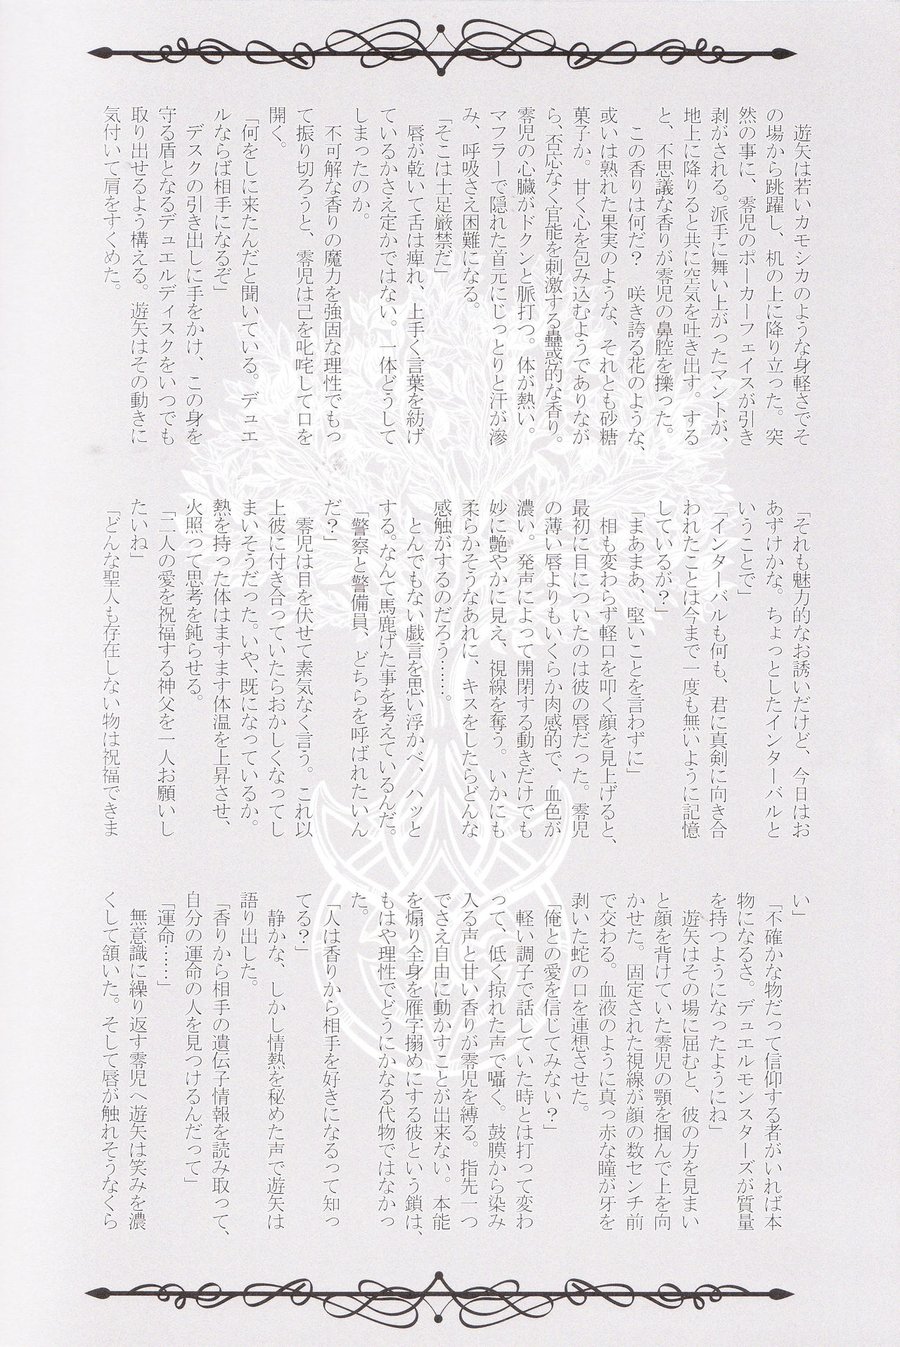 遊矢は若いカモシカのような身軽さでそ
の場から跳躍し、机の上に降り立った。突
然の事に、零児のポーカーフェイスが引き
剥がされる。派手に舞い上がったマントが、
地上に降りると共に空気を吐き出す。する
と、不思議な香りが零児の鼻腔を擽った。
　この香りは何だ？　咲き誇る花のような、
或いは熟れた果実のような、それとも砂糖
菓子か。甘く心を包み込むようでありなが
ら、否応なく官能を刺激する蠱惑的な香り。
零児の心臓がドクンと脈打つ。体が熱い。
マフラーで隠れた首元にじっとりと汗が滲
み、呼吸さえ困難になる。
「そこは土足厳禁だ」
　唇が乾いて舌は痺れ、上手く言葉を紡げ
ているかさえ定かではない。一体どうして
しまったのか。
　不可解な香りの魔力を強固な理性でもっ
て振り切ろうと、零児は己を叱咤して口を
開く。
「何をしに来たんだと聞いている。デュエ
ルならば相手になるぞ」
　デスクの引き出しに手をかけ、この身を
守る盾となるデュエルディスクをいつでも
取り出せるよう構える。遊矢はその動きに
気付いて肩をすくめた。
「それも魅力的なお誘いだけど、今日はお
あずけかな。ちょっとしたインターバルと
いうことで」
「インターバルも何も、君に真剣に向き合
われたことは今まで一度も無いように記憶
しているが？」
「まあまあ、堅いことを言わずに」
　相も変わらず軽口を叩く顔を見上げると、
最初に目についたのは彼の唇だった。零児
の薄い唇よりもいくらか肉感的で、血色が
濃い。発声によって開閉する動きだけでも
妙に艶やかに見え、視線を奪う。いかにも
柔らかそうなあれに、キスをしたらどんな
感触がするのだろう……。
　とんでもない戯言を思い浮かべ、ハッと
する。なんて馬鹿げた事を考えているんだ。
「警察と警備員、どちらを呼ばれたいん
だ？」
　零児は目を伏せて素気なく言う。これ以
上彼に付き合っていたらおかしくなってし
まいそうだった。いや、既になっているか。
熱を持った体はますます体温を上昇させ、
火照って思考を鈍らせる。
「二人の愛を祝福する神父を一人お願いし
たいね」
「どんな聖人も存在しない物は祝福できま
い」
「不確かな物だって信仰する者がいれば本
物になるさ。デュエルモンスターズが質量
を持つようになったようにね」
　遊矢はその場に屈むと、彼の方を見まい
と顔を背けていた零児の顎を掴んで上を向
かせた。　固定された視線が顔の数センチ前
で交わる。血液のように真っ赤な瞳が牙を
剥いた蛇の口を連想させた。
「俺との愛を信じてみない？」
　軽い調子で話していた時とは打って変わ
って、低く掠れた声で囁く。鼓膜から染み
入る声と甘い香りが零児を縛る。指先一つ
でさえ自由に動かすことが出来ない。本能
を煽り全身を雁字搦めにする彼という鎖は、
もはや理性でどうにかなる代物ではなかっ
た。
「人は香りから相手を好きになるって知っ
てる？」
　静かな、しかし情熱を秘めた声で遊矢は
語り出した。
「香りから相手の遺伝子情報を読み取って、
自分の運命の人を見つけるんだって」
「運命……」
　無意識に繰り返す零児へ遊矢は笑みを濃
くして頷いた。そして唇が触れそうなくら